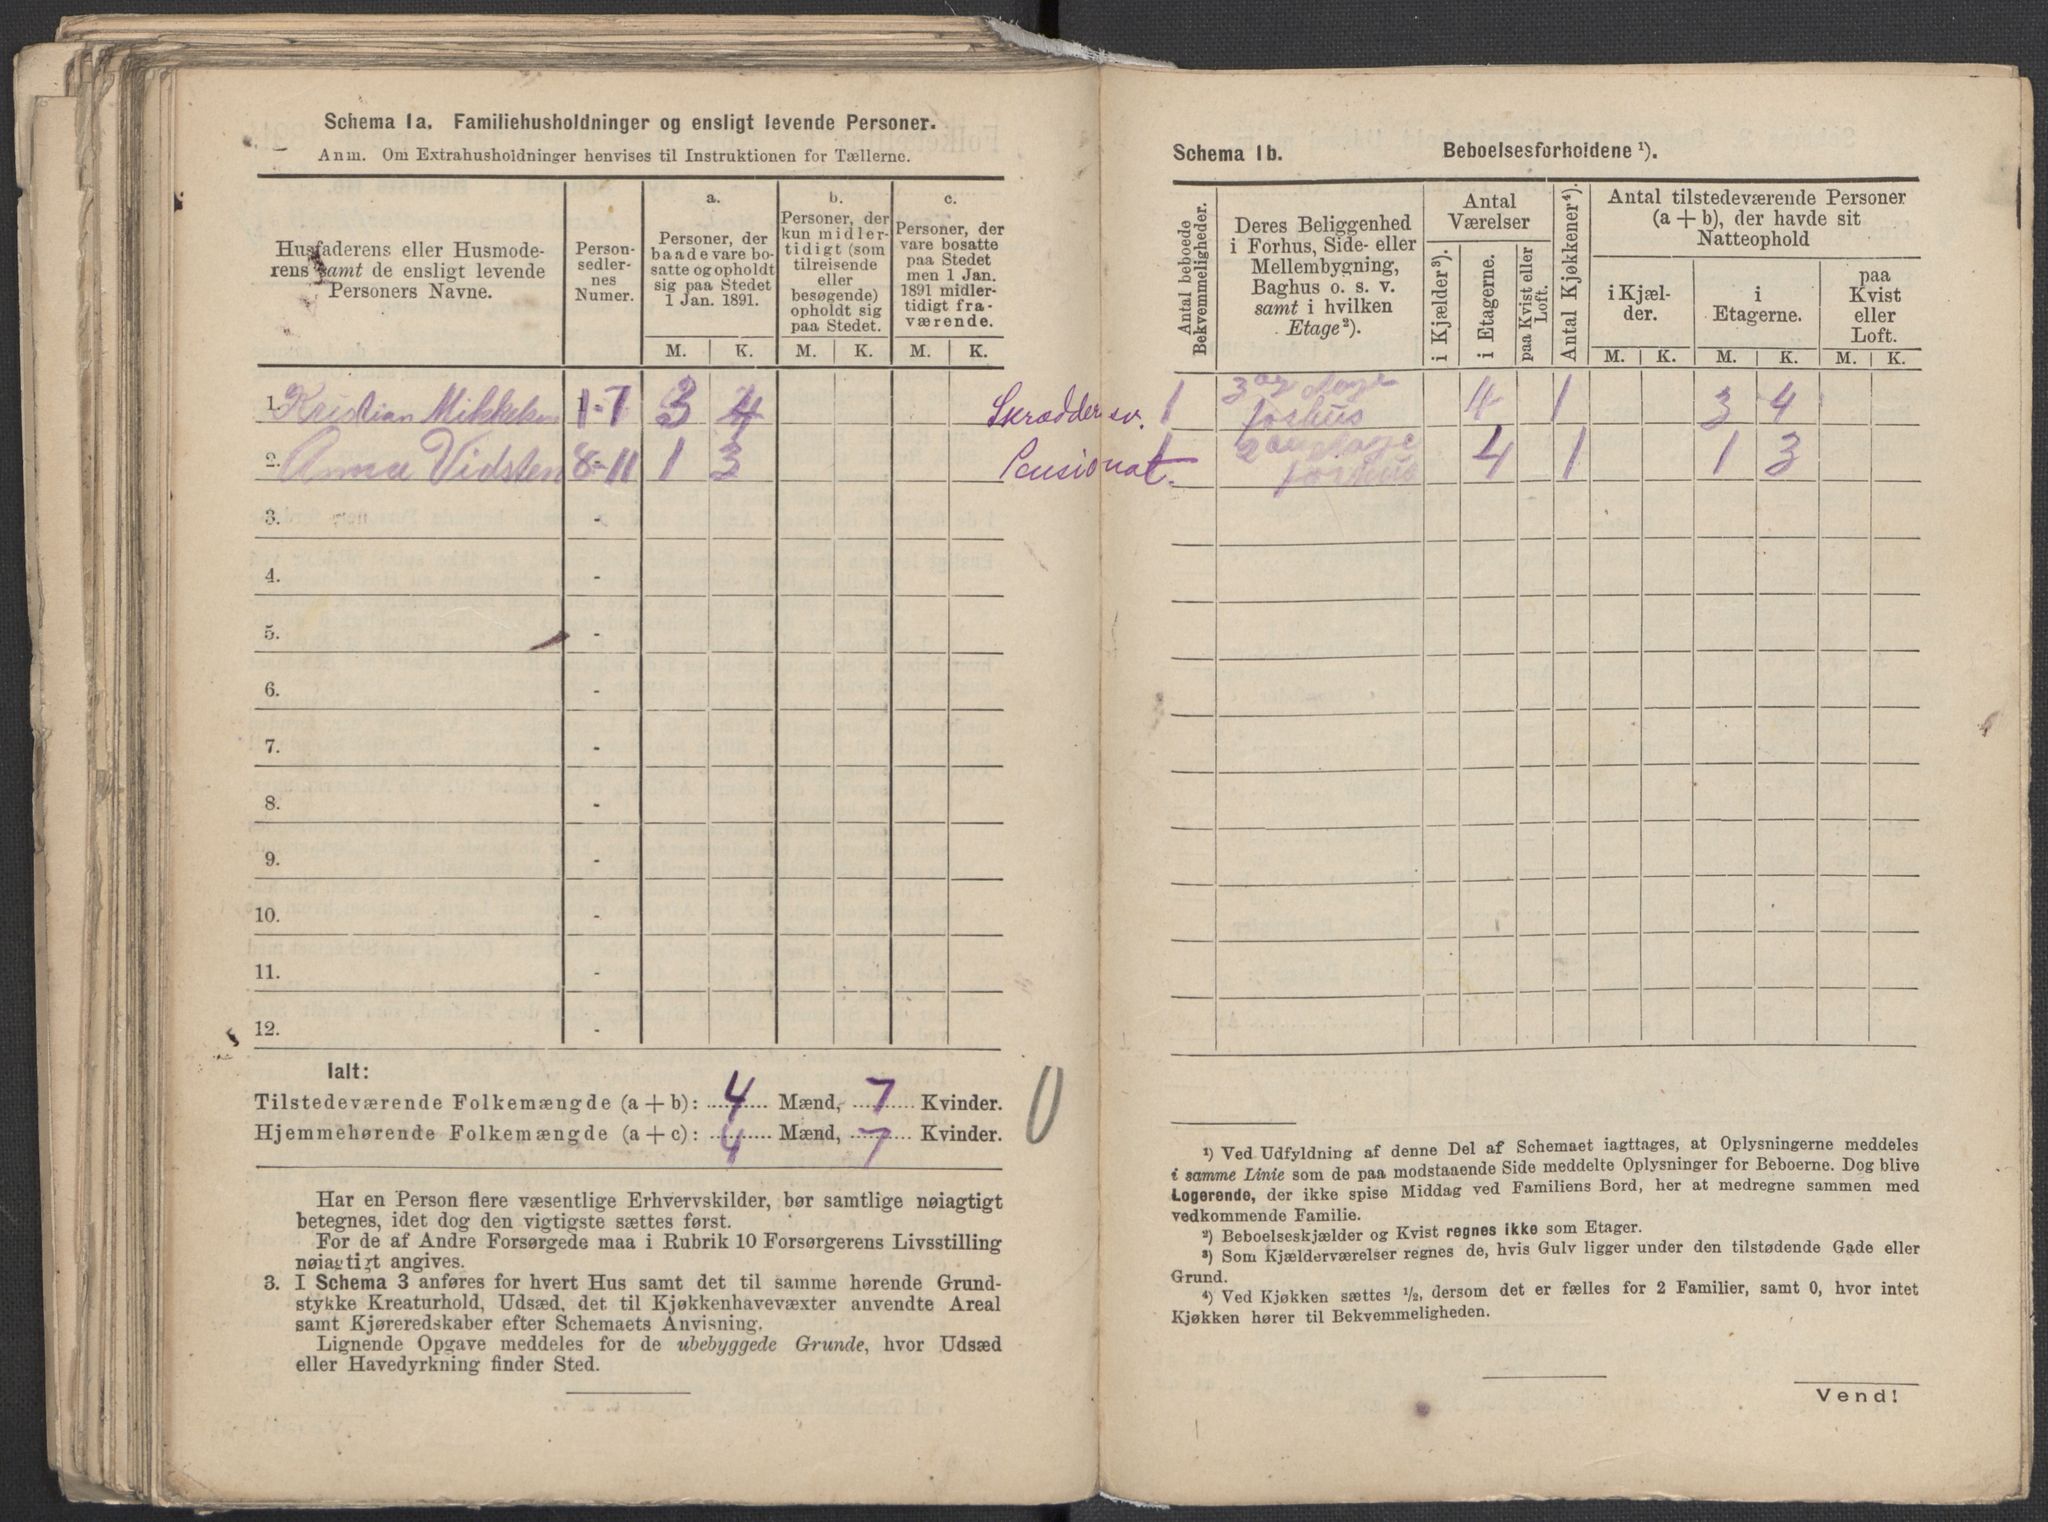 Schema 1a. Familiehusholdninger og ensligt levende Personer.
Anm. Om Extrahusholdninger henvises til Instruktionen for Tællerne.
Husfaderens eller Husmoderens samt de ensligt levende Personers Navne.
Personsedlernes Numer.
a. Personer, der baade vare bosatte og opholdt sig paa Stedet 1 Jan. 1891.
b. Personer, der kun midlertidigt (som tilreisende eller besøgende) opholdt sig paa Stedet.
c. Personer, der vare bosatte paa Stedet men 1 Jan. 1891 midlertidigt fraværende.
M. K. M. K. M. K.
1. Kristian Mikkelsen 1-7 3 4
2. Anna Vidsten 8-11 1 3
3. -
4. -
5. -
6. -
7. -
8. -
9. -
10. -
11. -
12. -
Ialt:
Tilstedeværende Folkemængde (a + b): 4 Mænd, 7 Kvinder.
Hjemmehørende Folkemængde (a + c): 4 Mænd, 7 Kvinder.
0
Har en Person flere væsentlige Erhvervskilder, bør samtlige nøiagtigt
betegnes, idet dog den vigtigste sættes først.
For de af Andre Forsørgede maa i Rubrik 10 Forsørgerens Livsstilling
nøiagtigt angives.
3. I Schema 3 anføres for hvert Hus samt det til samme hørende Grund-
stykke Kreaturhold, Udsæd, det til Kjøkkenhavevæxter anvendte Areal
samt Kjøreredskaber efter Schemaets Anvisning.
Lignende Opgave meddeles for de ubebyggede Grunde, hvor Udsæd
eller Havedyrkning finder Sted.
Schema 1b. Beboelsesforholdene ¹).
Antal beboede Bekvemmeligheder.
Deres Beliggenhed i Forhus, Side- eller Mellembygning, Baghus o. s. v. samt i hvilken Etage ²).
Antal Værelser
i Kjælder ³).
i Etagerne.
paa Kvist eller Loft.
Antal Kjøkkener ⁴).
Antal tilstedeværende Personer (a + b), der havde sit Natteophold
i Kjælder.
i Etagerne.
paa Kvist eller Loft.
M. K. M. K. M. K.
Skrædder sv. 1 forhus 4 1 3 4
Pensionat. 1 forhus 4 1 1 3
¹) Ved Udfyldning af denne Del af Schemaet iagttages, at Oplysningerne meddeles
i samme Linie som de paa modstaaende Side meddelte Oplysninger for Beboerne. Dog blive
Logerende, der ikke spise Middag ved Familiens Bord, her at medregne sammen med
vedkommende Familie.
²) Beboelseskjælder og Kvist regnes ikke som Etager.
³) Som Kjælderværelser regnes de, hvis Gulv ligger under den tilstødende Gade eller
Grund.
⁴) Ved Kjøkken sættes ½, dersom det er fælles for 2 Familier, samt 0, hvor intet
Kjøkken hører til Bekvemmeligheden.
Vend!